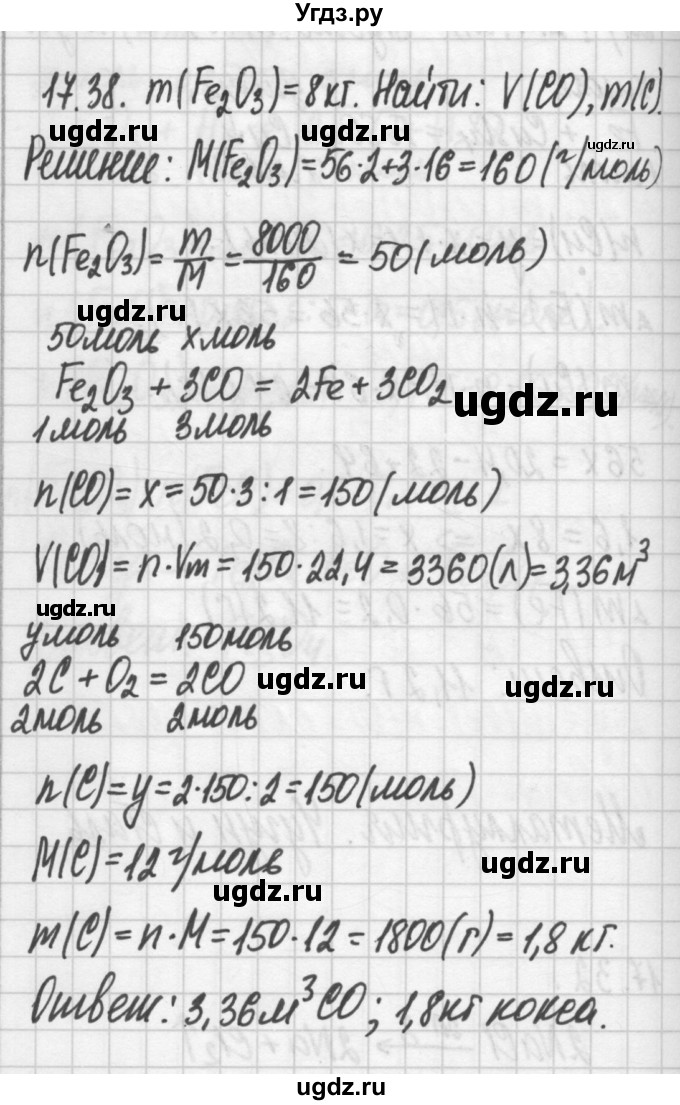 Угдз.ру
17.38. m(Fe₂O₃)=8кг. Найти: V(CO), m(C).
ugdz.ru ugdz.ru ugdz.ru
Решение: M(Fe₂O₃)=56·2+3·16=160(г/моль)
n(Fe₂O₃)=m/M=8000/160=50(моль)
ugdz.ru
50моль xмоль
Fe₂O₃ + 3CO = 2Fe+3CO₂
ugdz.ru
1моль 3моль
n(CO)=x=50·3:1=150(моль)
V(CO)=n·Vm=150·22,4=3360(л)=3,36м³
ugdz.ru
yмоль 150моль
2C+O₂=2CO
ugdz.ru ugdz.ru
2моль 2моль
n(C)=y=2·150:2=150(моль)
M(C)=12 г/моль
ugdz.ru ugdz.ru
m(C)=n·M=150·12=1800(г)=1,8кг.
Ответ: 3,36м³CO; 1,8кг кокса.
ugdz.ru